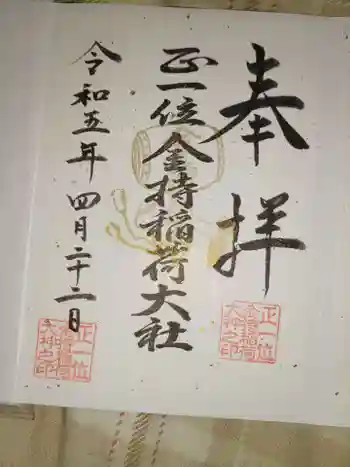 奉拝
正一位金持稲荷大社
令和五年四月二十二日
正一位
金持稲荷
大神之印
正一位
金持稲荷
大神之印